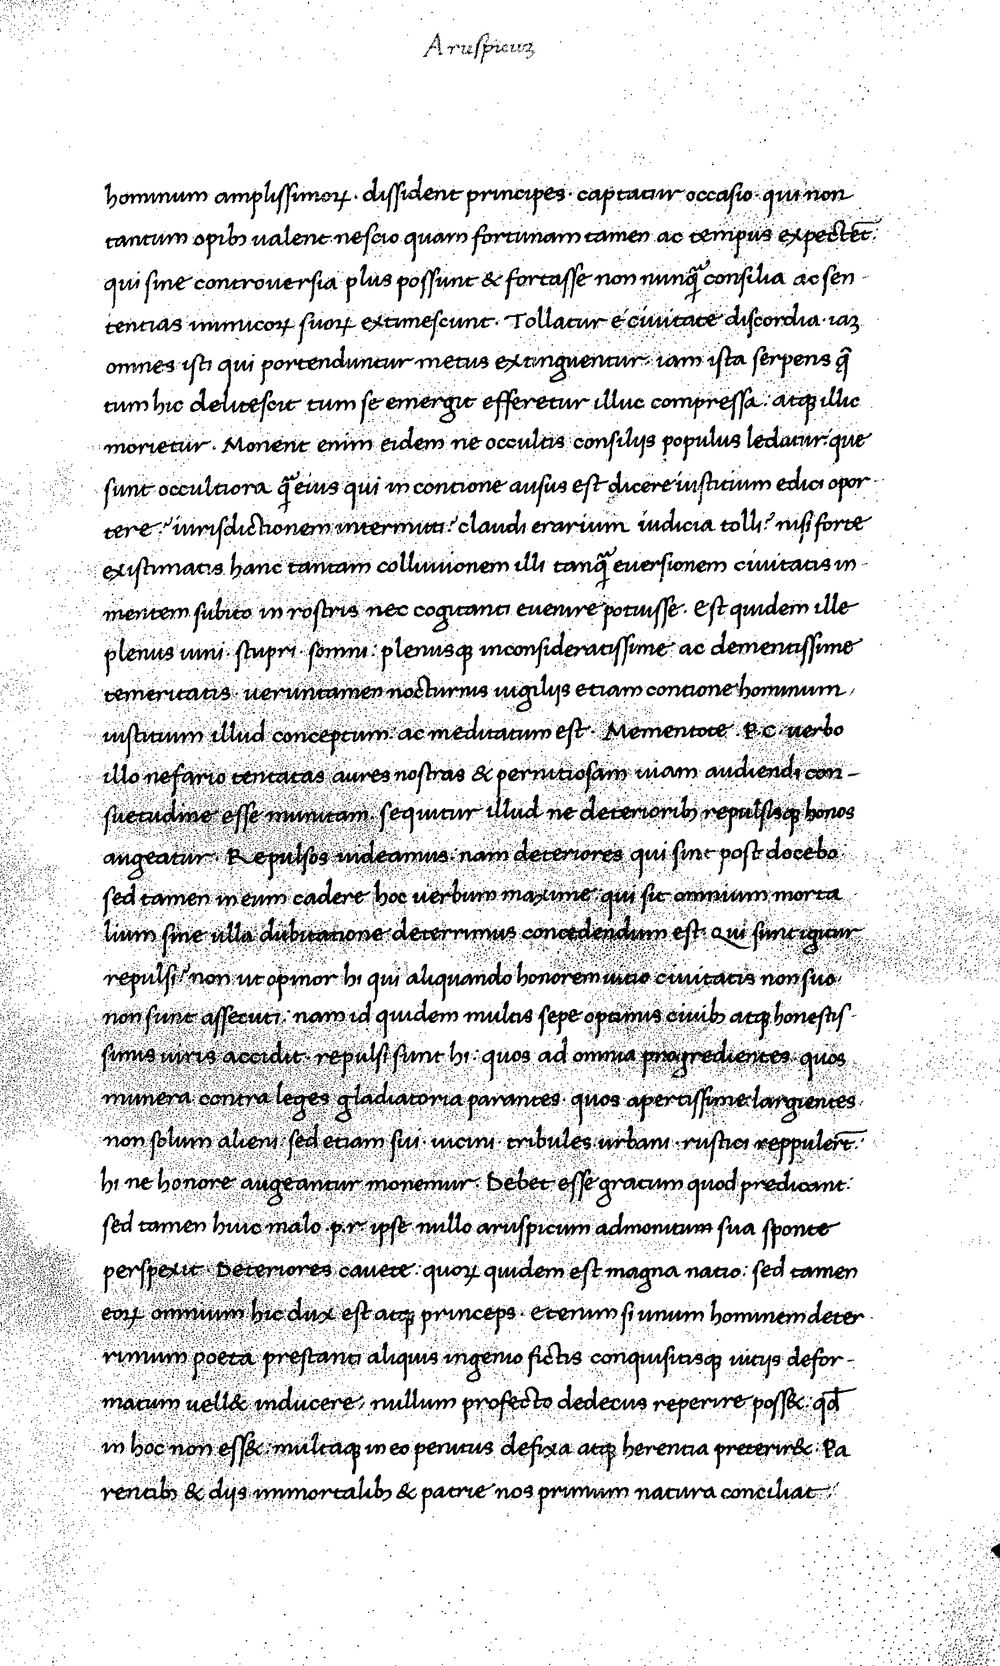 Aruspicuꝫ
hominum amplissimoꝝ · dissident principes · captatur occasio · qui non
tantum opibꝫ ualent nescio quam fortunam tamen ac tempus expectēt:
qui sine controuersia plus possunt & fortasse non nunq̃ consilia ac sen-
tentias inimicoꝝ suoꝝ extimescunt · Tollatur e ciuitate discordia · iaꝫ
omnes isti qui portenduntur metus extinguentur · iam ista serpens q̃
tum hic delitescit tum se emergit efferetur illuc compressa: atqꝫ illic
morietur · Monent enim eidem ne occultis consilijs populus ledatur: que
sunt occultiora q̃ eius qui in contione ausus est dicere iustitium edici opor-
tere? iurisdictionem intermitti? claudi erarium iudicia tolli? nisi forte
existimatis hanc tantam colluuionem illi tanq̃ euersionem ciuitatis in-
mentem subito in rostris nec cogitanti euenire potuisse · Est quidem ille
plenus uini · stupri · somni: plenusqꝫ inconsideratissime ac dementissime
temeritatis · ueruntamen nocturnis uigilijs etiam contione hominum,
iustitium illud conceptum ac meditatum est · Mementote · P.C. uerbo
illo nefario tentatas aures nostras & pernitiosam uiam audiendi con-
suetudine esse munitam · sequitur illud ne deterioribꝫ repulsisqꝫ honos
augeatur · Repulsos uideamus: nam deteriores qui sint post docebo:
sed tamen in eum cadere hoc uerbum maxime qui sit omnium morta
lium sine ulla dubitatione deterrimus concedendum est · Qui sunt igitur
repulsi? non ut opinor hi qui aliquando honorem uitio ciuitatis non suo
non sunt assecuti: nam id quidem multis sepe optimis ciuibꝫ atqꝫ honestis-
simis uiris accidit · repulsi sunt hi: quos ad omnia progredientes quos
munera contra leges gladiatoria parantes · quos apertissime largientes
non solum alieni sed etiam sui · uicini · tribules urbani · rustici reppulert̄:
hi ne honore augeantur monemur · Debet esse gratum quod predicant:
sed tamen huic malo · p.r. ipse nullo aruspicum admonitum sua sponte
perspexit · Deteriores cauete: quoꝝ quidem est magna natio: sed tamen
eoꝝ omnium hic dux est atqꝫ princeps · etenim si unum hominem deter
rimum poeta prestanti aliquis ingenio fictis conquisitisqꝫ uitijs defor-
matum uell& inducere, nullum profecto dedecus reperire poss&: qđ
in hoc non ess&: multaqꝫ in eo penitus defixa atqꝫ herentia preterir& · Pa
rentibꝫ & dijs immortalibꝫ & patrie nos primum natura conciliat: